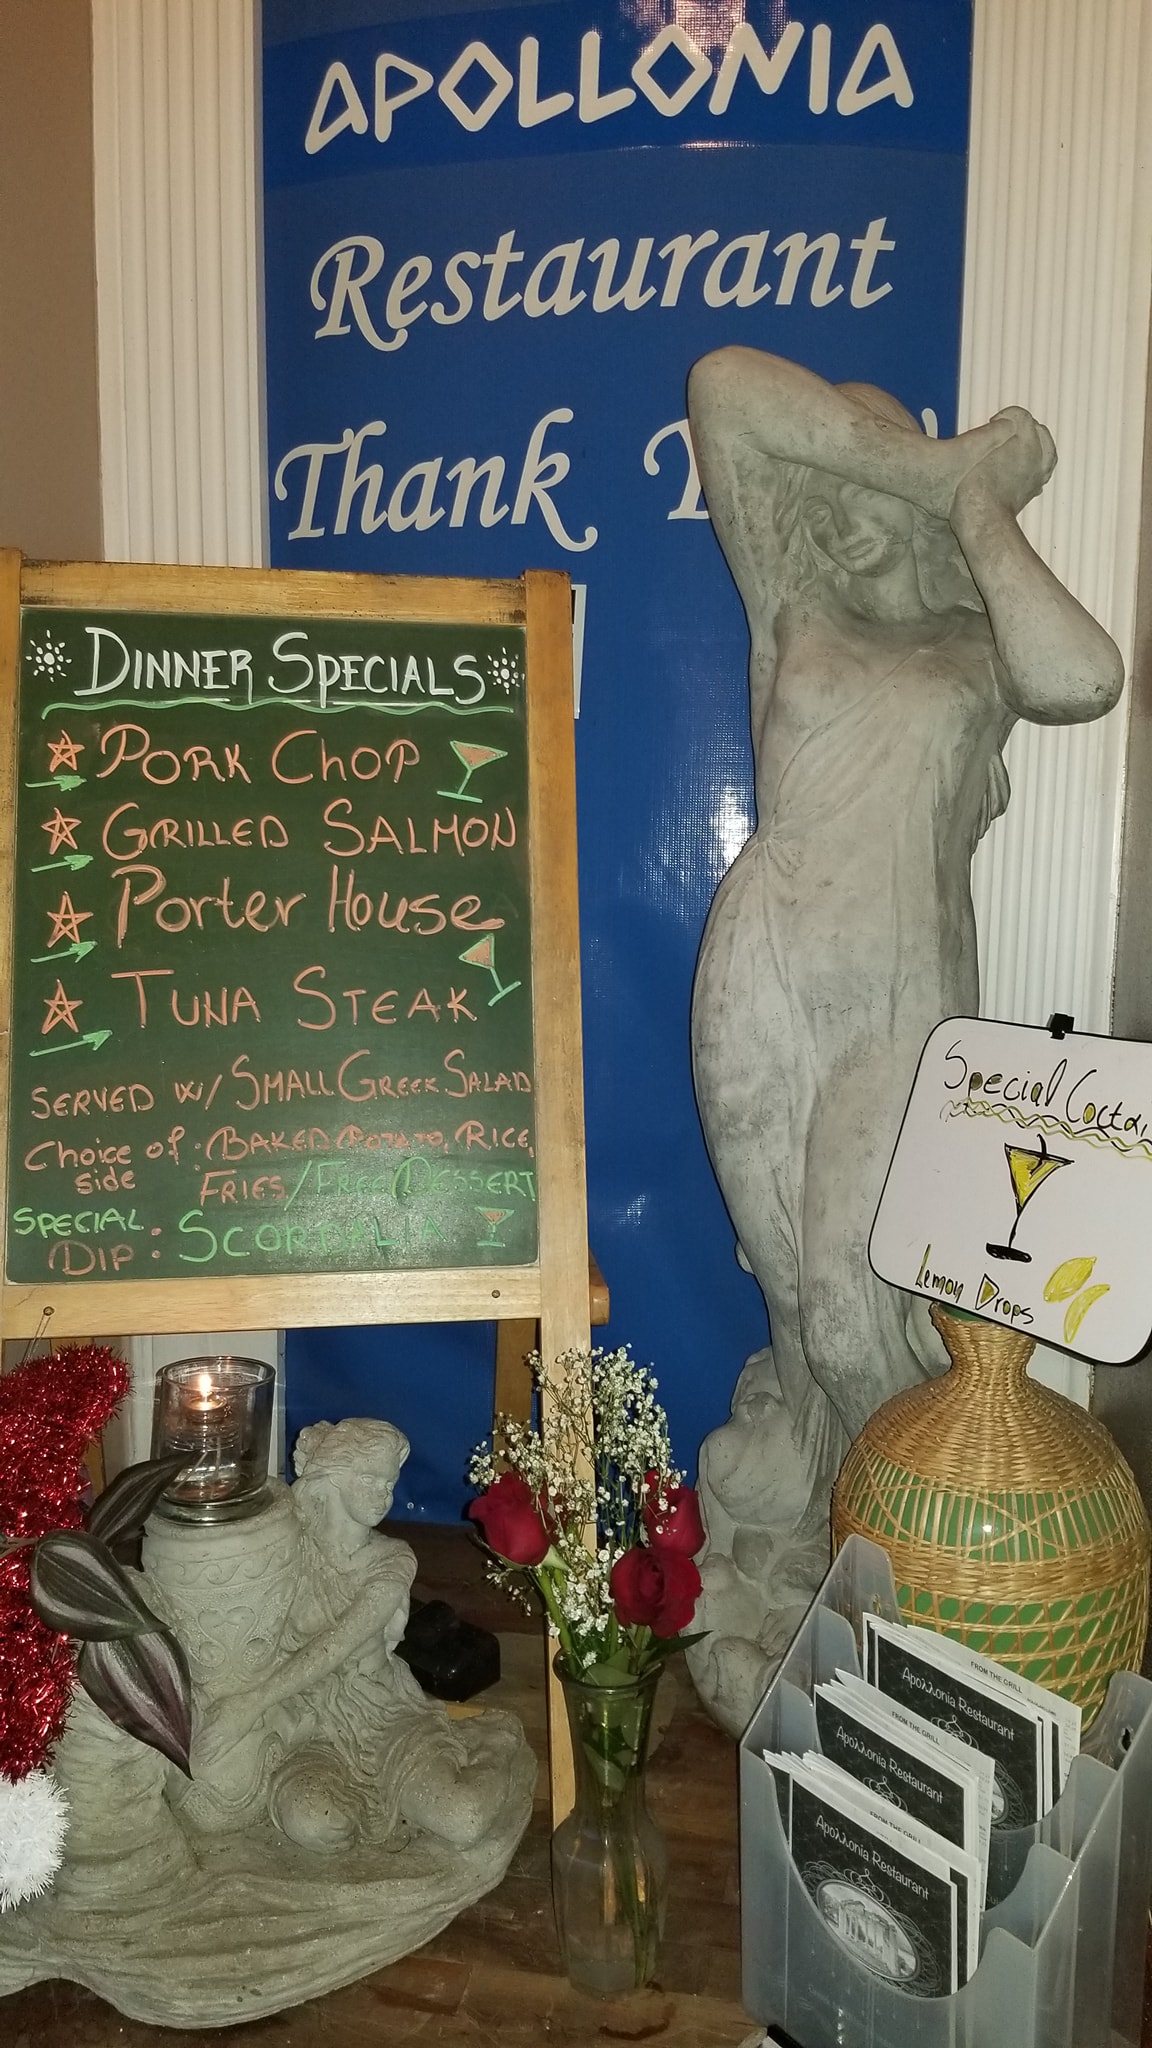 APOLLONIA
Restaurant
Thank
DINNER SPECIALS
PORK CHOP
GRILLED SALMON
Porter House
TUNA STEAK
SERVED W/ SMALL GREEK SALAD
Choice of : BAKED POTATO, RICE,
side FRIES / FREE DESSERT
SPECIAL
DIP : SCORDALIA
Special Coctai
Lemon Drops
FROM THE GRILL
Apoλλonia Restaurant
FROM THE GRILL
Apoλλonia Restaurant
FROM THE GRILL
Apoλλonia Restaurant